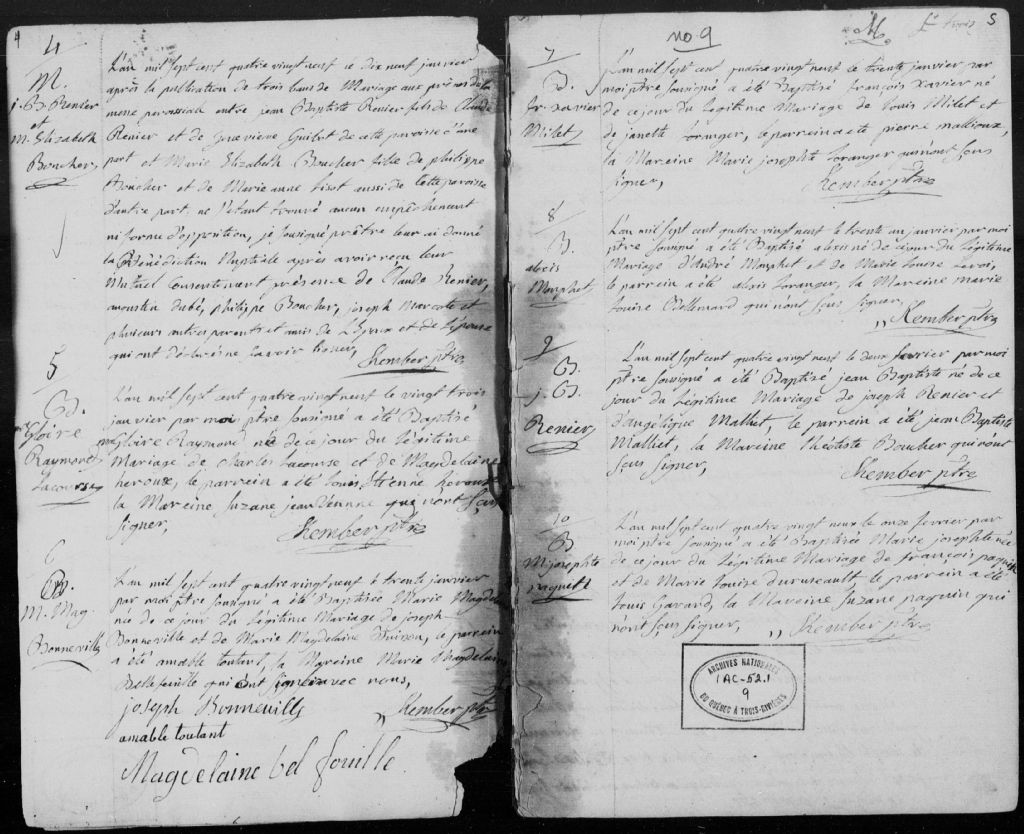 4
4
M.
j. B. Renier
et
M. Elizabeth
Boucher,
L'an mil sept cent quatre vingt neuf le dix neuf janvier
après la publication de trois bans de Mariage aux prônes de la
messe paroissiale entre jean Baptiste Renier fils de Claude
Renier et de Genevieve Guibert de cette paroisse d'une
part et Marie Elizabeth Boucher fille de philippe
Boucher et de Marie anne aussi de cette paroisse
d'autre part ne s'étant trouvé aucun empêchement
ni forme d'opposition, je sousigné prêtre leur ai donné
la Bénédiction Nuptiale après avoir reçu leur
Mutuel Consentement présence de Claude Renier,
augustin dubé, philippe Boucher, joseph Marcotte et
plusieurs autres parents et amis de l'Epoux et de l'epouse
qui ont déclaré ne savoir signer, Kember ptre
5
B.
Raymond
Lacourse
L'an mil sept cent quatre vingt neuf le vingt trois
janvier par moi ptre sousigné a été Baptisé
Raymond né de ce jour du Légitime
Mariage de Charles Lacourse et de Magdelaine
heroux, le parrein a été Louis Etienne heroux
la Mareine Suzane jean Denne qui n'ont sçus
signer, Kember ptre
6
B.
M. Mag
Bonneville
L'an mil sept cent quatre vingt neuf le trente janvier
par moi ptre sousigné a été Baptisée Marie Magdel
née de ce jour du Légitime Mariage de joseph
Bonneville et de Marie Magdelaine le parrein
a été amable toutant, la Mareine Marie Magdelaine
Bellefeuille qui ont signé avec nous,
joseph Bonneville
,, Kember ptre
amable toutant
Magdelaine bel feuille
no 9
M
5
7
B.
fr. xavier
Milet
L'an mil sept cent quatre vingt neuf le trente janvier par
moi ptre sousigné a été Baptisé françois Xavier né
de ce jour du Légitime Mariage de Louis Milet et
de janette Loranger, le parrein a été pierre mailloux,
la Mareine Marie josephte Loranger qui n'ont sçus
signer, Kember ptre
8
B.
alexis
Monphet
L'an mil sept cent quatre vingt neuf le trente un janvier par moi
ptre sousigné a été Baptisé alexis né de ce jour du Légitime
Mariage d'André Monphet et de Marie Louise
le parrein a été alexis Loranger, la Mareine marie
Louise qui n'ont sçus signer,
,, Kember ptre
9
B.
j. B.
Renier
L'an mil sept cent quatre vingt neuf le deux fevrier par moi
ptre sousigné a été Baptisé jean Baptiste né de ce
jour du Légitime Mariage de joseph Renier et
d'angélique Malhet, le parrein a été jean Baptiste
Malhet, la Mareine théotiste Boucher qui n'ont
sçus signer, Kember ptre
10
B
M josephte
paquin
L'an mil sept cent quatre vingt neuf le onze fevrier par
moi ptre sousigné a été Baptisée Marie josephte née
de ce jour du Légitime Mariage de françois paquin
et de Marie Louise le parrein a été
Louis Gavard, la Mareine Suzane paquin qui
n'ont sçus signer, ,, Kember ptre
ARCHIVES NATIONALES
1AC-52.1
9
DU QUÉBEC À TROIS-RIVIÈRES